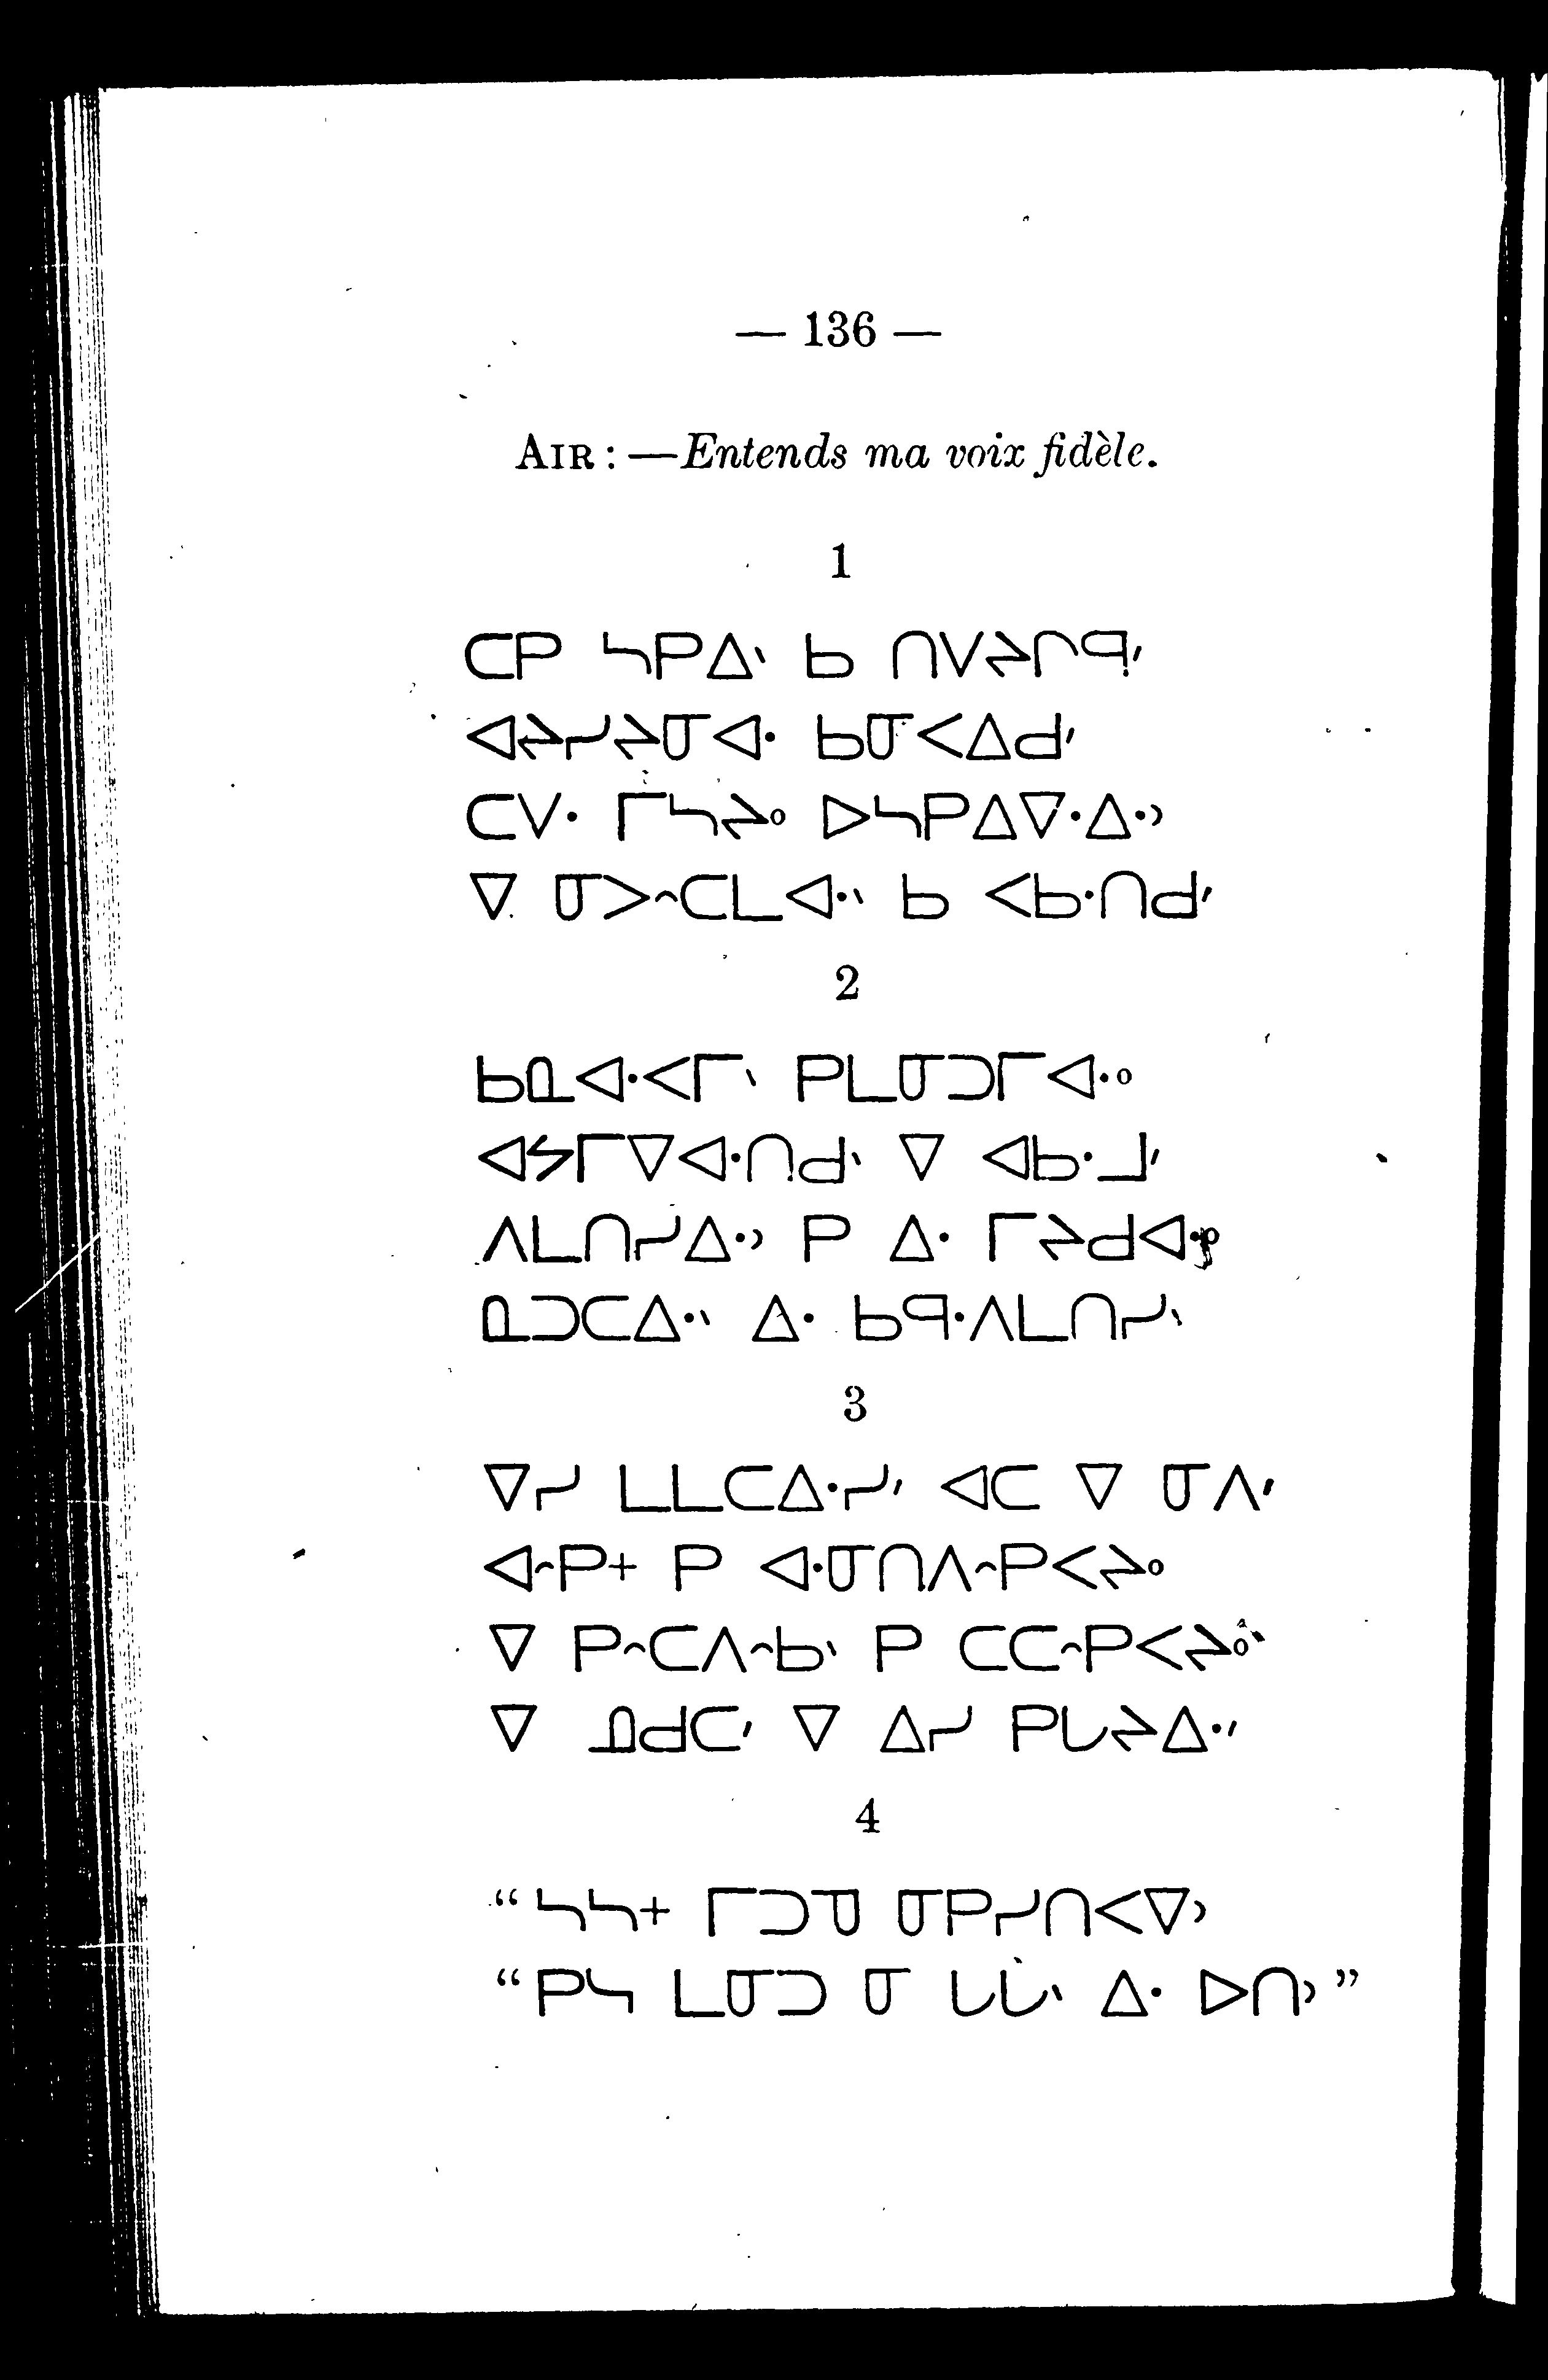 — 136 —
AIR : —Entends ma voix fidèle.
1
ᑕᑭ ᓴᑭᐃᐠ ᑲ ᑎᐯᔨᒋᑫᐟ
ᐊᔨᓯᔨᓂᐊᐧ ᑲᓂᐸᐃᑯᐟ
ᑕᐯᐧ ᒥᓴᔨᐤ ᐅᓴᑭᐃᐁᐧᐃᐧᐣ
ᐁ ᓂᐳᐢᑕᒪᐊᐧᐠ ᑲ ᐸᑲᐧᑎᑯᐟ
2
ᑲᓇᐊᐧᐸᒥᐠ ᑭᒪᓂᑐᒥᐊᐧᐤ
ᐊᔕᒥᐁᐊᐧᑎᑯᐠ ᐁ ᐊᑲᐧᒧᐟ
ᐱᒪᑎᓯᐃᐧᐣ ᑭ ᐃᐧ ᒥᔨᑯᐊᐧᐤ
ᓇᑐᑕᐃᐧᐠ ᐃᐧ ᑲᑫᐧᐱᒪᑎᓯᐠ
3
ᐁᓯ ᒪᒪᑕᐃᐧᓯᐟ ᐊᑕ ᐁ ᓂᐱᐟ
ᐊᐢᑭᕀ ᑭ ᐊᐧᓂᑎᐱᐢᑭᐸᔨᐤ
ᐁ ᑭᐢᑕᐱᐢᑲᐠ ᑭ ᑕᑕᐢᑭᐸᔨᐤ
ᐁ ᓄᑯᑕᐟ ᐁ ᐃᓯ ᑭᒐᔨᐃᐧᐟ
4
“ ᓴᓴᕀ ᒥᑐᓀ ᓂᑭᓯᑎᐸᐁᐣ
“ ᑭᓴ ᒪᓂᑐ ᓂ ᒐᒐᐠ ᐃᐧ ᐅᑎᐣ ”